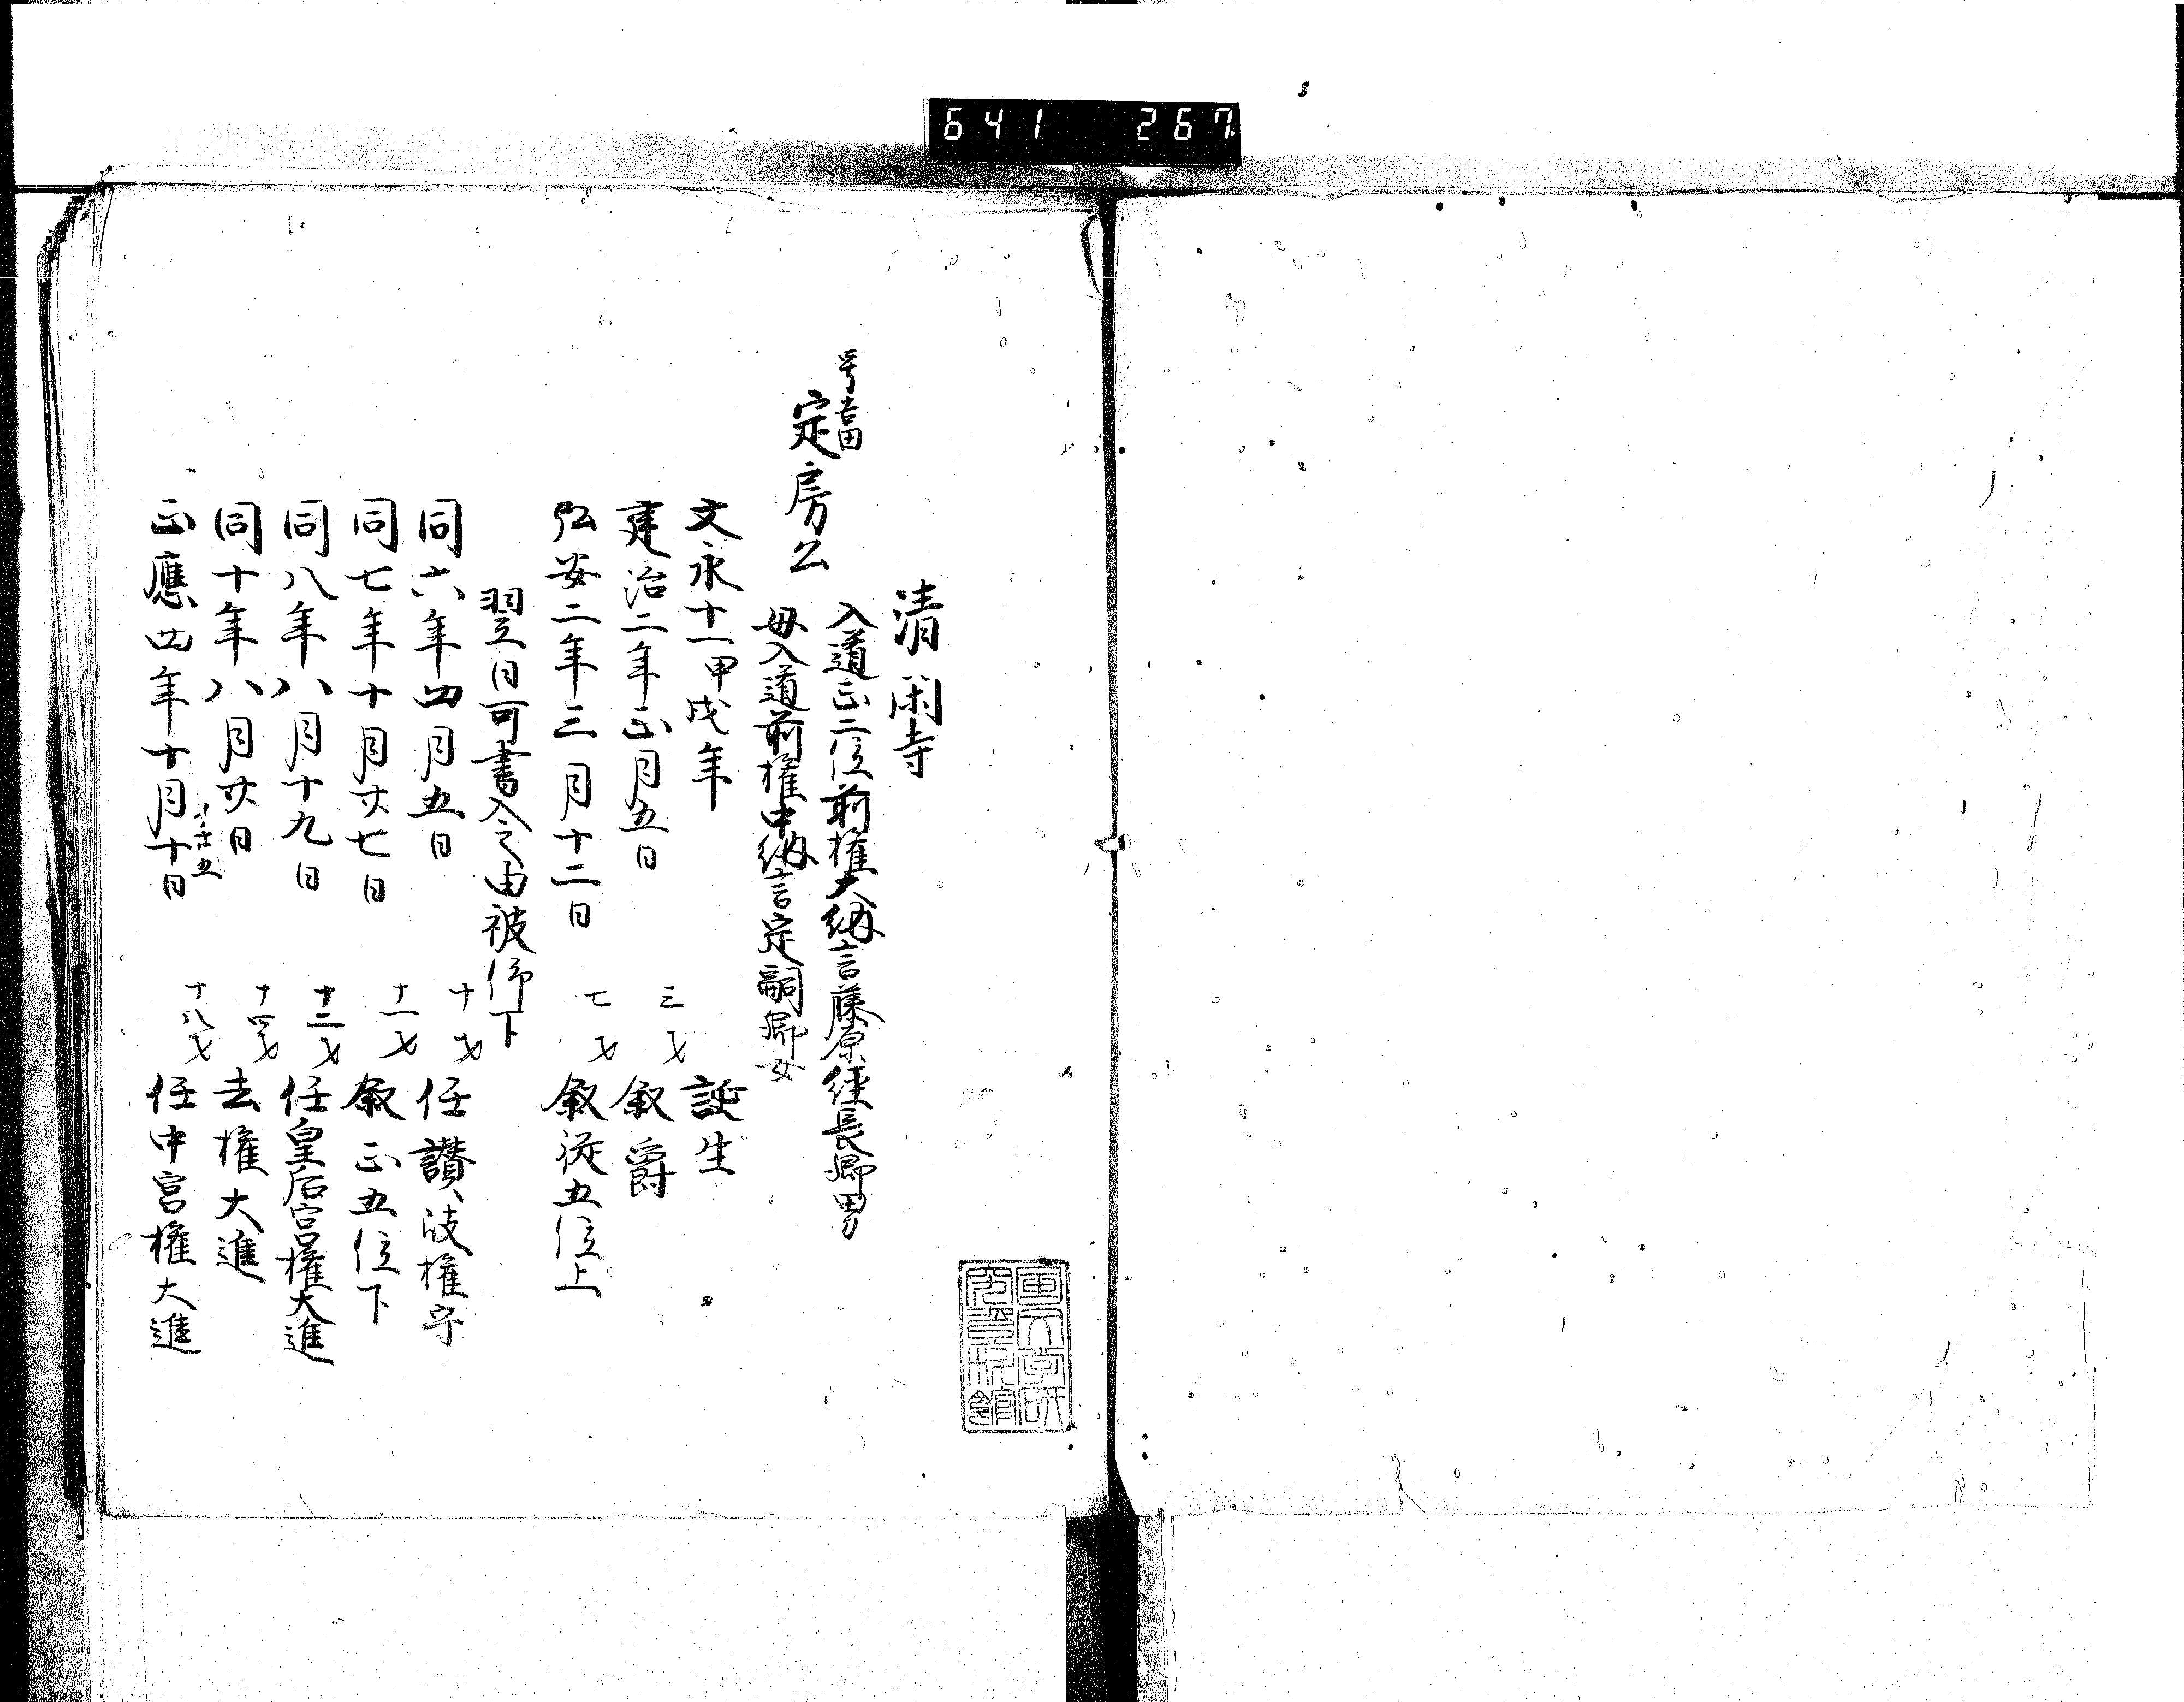 641 267
清閑寺
入道正二位前権大納言藤原経長卿男
号吉田
定房公
母入道前権中納言定嗣卿女
文永十一甲戌年 誕生
建治二年正月五日 三才 叙爵
弘安二年三月十二日 七才 叙従五位上
翌日可書入之由被仰下
同六年四月五日 十才 任讃岐権守
同七年十月廿七日 十一才 叙正五位下
同八年八月十九日 十二才 任皇后宮権大進
同十年八月廿日 十四才 去権大進
正應四年十月十日 十八才 任中宮権大進
国文学研
究資料館